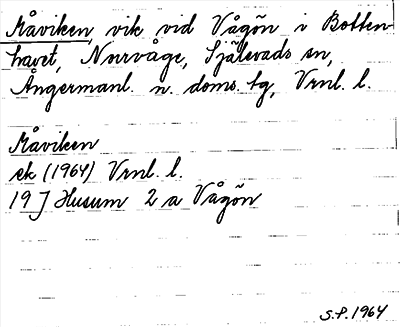 Råviken, vik vid Vågön i Botten-
havet, Norrvåge, Själevads sn,
Ångermanl. n. doms. tg, Vrnl. l.
Råviken
ek (1964) Vrnl. l.
19 J Husum 2 a Vågön
S.P. 1964